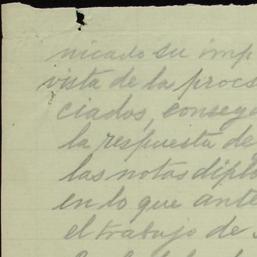 nicado su imp
vista de la proces
ciados, conseg
la respuesta de
las notas diplo
en lo que ante
el trabajo de